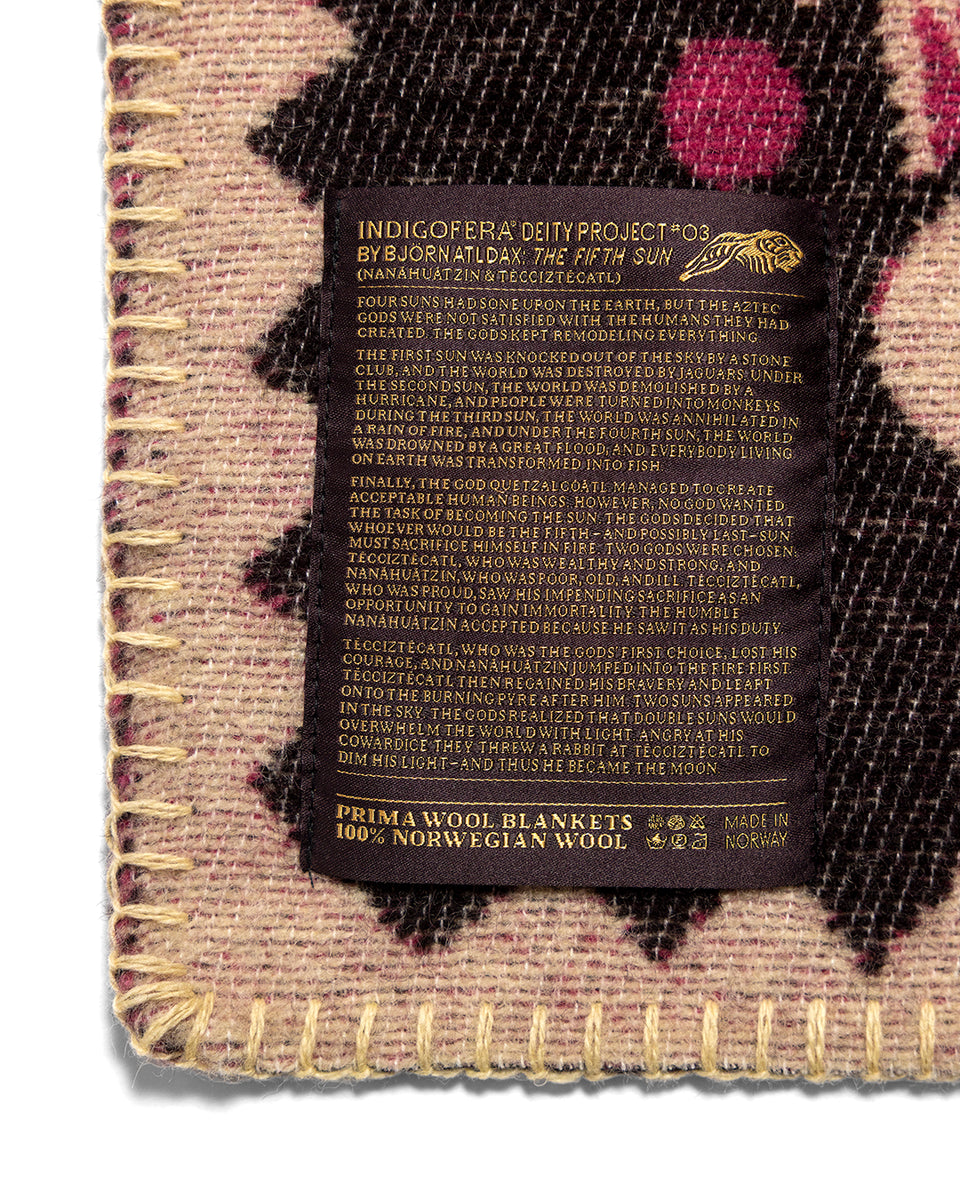 INDIGOFERA® DEITY PROJECT #03
BY BJÖRN ATLDAX: THE FIFTH SUN
(NANÁHUÁTZIN & TÉCCIZTÉCATL)
FOUR SUNS HAD SONE UPON THE EARTH, BUT THE AZTEC
GODS WERE NOT SATISFIED WITH THE HUMANS THEY HAD
CREATED. THE GODS KEPT REMODELING EVERYTHING.
THE FIRST SUN WAS KNOCKED OUT OF THE SKY BY A STONE
CLUB, AND THE WORLD WAS DESTROYED BY JAGUARS. UNDER
THE SECOND SUN, THE WORLD WAS DEMOLISHED BY A
HURRICANE, AND PEOPLE WERE TURNED INTO MONKEYS.
DURING THE THIRD SUN, THE WORLD WAS ANNIHILATED IN
A RAIN OF FIRE, AND UNDER THE FOURTH SUN, THE WORLD
WAS DROWNED BY A GREAT FLOOD, AND EVERYBODY LIVING
ON EARTH WAS TRANSFORMED INTO FISH.
FINALLY, THE GOD QUETZALCÓATL MANAGED TO CREATE
ACCEPTABLE HUMAN BEINGS. HOWEVER, NO GOD WANTED
THE TASK OF BECOMING THE SUN. THE GODS DECIDED THAT
WHOEVER WOULD BE THE FIFTH–AND POSSIBLY LAST–SUN
MUST SACRIFICE HIMSELF IN FIRE. TWO GODS WERE CHOSEN:
TÉCCIZTÉCATL, WHO WAS WEALTHY AND STRONG, AND
NANÁHUÁTZIN, WHO WAS POOR, OLD, AND ILL. TÉCCIZTÉCATL,
WHO WAS PROUD, SAW HIS IMPENDING SACRIFICE AS AN
OPPORTUNITY TO GAIN IMMORTALITY. THE HUMBLE
NANÁHUÁTZIN ACCEPTED BECAUSE HE SAW IT AS HIS DUTY.
TÉCCIZTÉCATL, WHO WAS THE GODS' FIRST CHOICE, LOST HIS
COURAGE, AND NANÁHUÁTZIN JUMPED INTO THE FIRE FIRST.
TÉCCIZTÉCATL THEN REGAINED HIS BRAVERY AND LEAPT
ONTO THE BURNING PYRE AFTER HIM. TWO SUNS APPEARED
IN THE SKY. THE GODS REALIZED THAT DOUBLE SUNS WOULD
OVERWHELM THE WORLD WITH LIGHT. ANGRY AT HIS
COWARDICE, THEY THREW A RABBIT AT TÉCCIZTÉCATL TO
DIM HIS LIGHT–AND THUS HE BECAME THE MOON.
PRIMA WOOL BLANKETS
100% NORWEGIAN WOOL
MADE IN
NORWAY